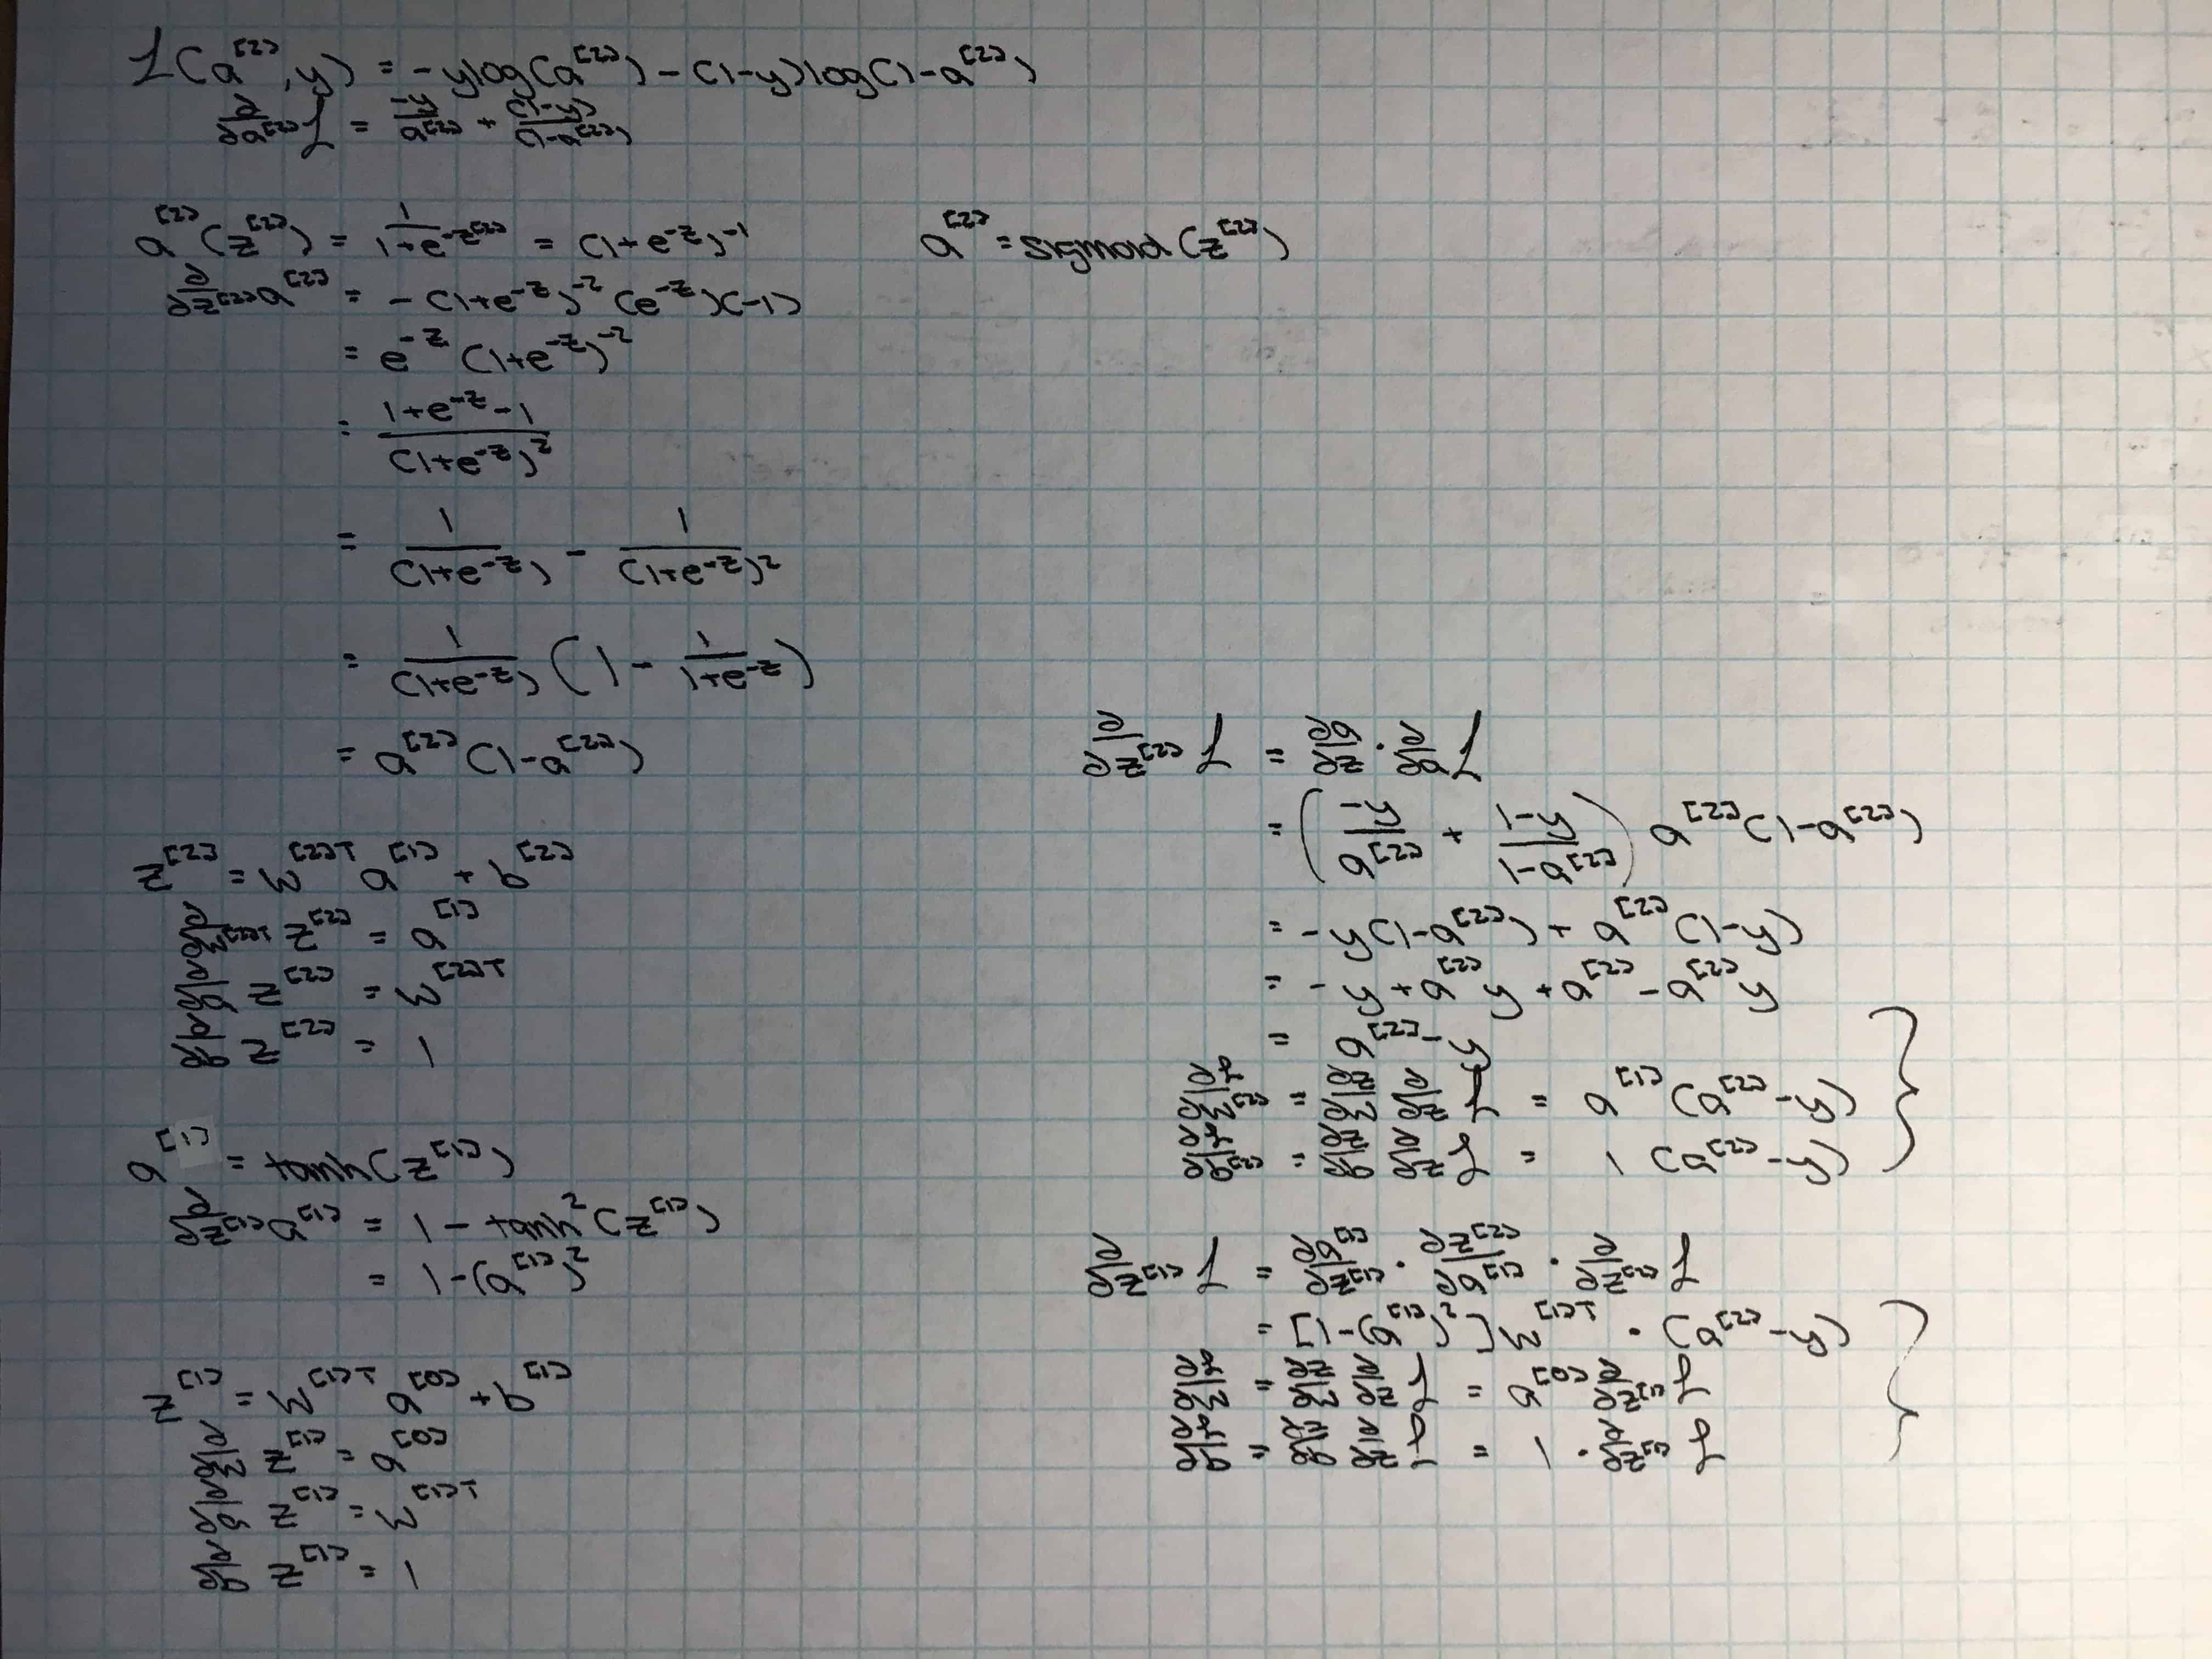 ℒ(a^[2], y) = -ylog(a^[2]) - (1-y)log(1-a^[2])
∂/∂a^[2] ℒ = -y/a^[2] + (1-y)/(1-a^[2])
a^[2](z^[2]) = 1/(1+e^-z^[2]) = (1+e^-z)^-1
a^[2] = sigmoid(z^[2])
∂/∂z^[2] a^[2] = -(1+e^-z)^-2 (e^-z)(-1)
= e^-z (1+e^-z)^-2
= (1+e^-z-1)/(1+e^-z)^2
= 1/(1+e^-z) - 1/(1+e^-z)^2
= 1/(1+e^-z) (1 - 1/(1+e^-z))
= a^[2](1-a^[2])
z^[2] = W^[2]T a^[1] + b^[2]
∂/∂W^[2]T z^[2] = a^[1]
∂/∂a z^[2] = W^[2]T
∂/∂b z^[2] = 1
a^[1] = tanh(z^[1])
∂/∂z^[1] a^[1] = 1 - tanh^2(z^[1])
= 1-(a^[1])^2
z^[1] = W^[1]T a^[0] + b^[1]
∂/∂W z^[1] = a^[0]
∂/∂a z^[1] = W^[1]T
∂/∂b z^[1] = 1
∂/∂z^[2] ℒ = ∂a/∂z · ∂/∂a ℒ
= (-y/a^[2] + (1-y)/(1-a^[2])) a^[2](1-a^[2])
= -y(1-a^[2]) + a^[2](1-y)
= -y + a^[2]y + a^[2] - a^[2]y
= a^[2] - y
∂ℒ/∂W^[2] = ∂z/∂W ∂/∂z ℒ = a^[1](a^[2]-y)
∂ℒ/∂b^[2] = ∂z/∂b ∂/∂z ℒ = 1 (a^[2]-y)
∂/∂z^[1] ℒ = ∂a^[1]/∂z^[1] · ∂z^[2]/∂a^[1] · ∂/∂z^[2] ℒ
= [1-(a^[1])^2] W^[1]T · (a^[2]-y)
∂ℒ/∂W = ∂z/∂W ∂/∂z ℒ = a^[0] ∂/∂z^[1] ℒ
∂ℒ/∂b = ∂z/∂b ∂/∂z ℒ = 1 · ∂/∂z^[1] ℒ